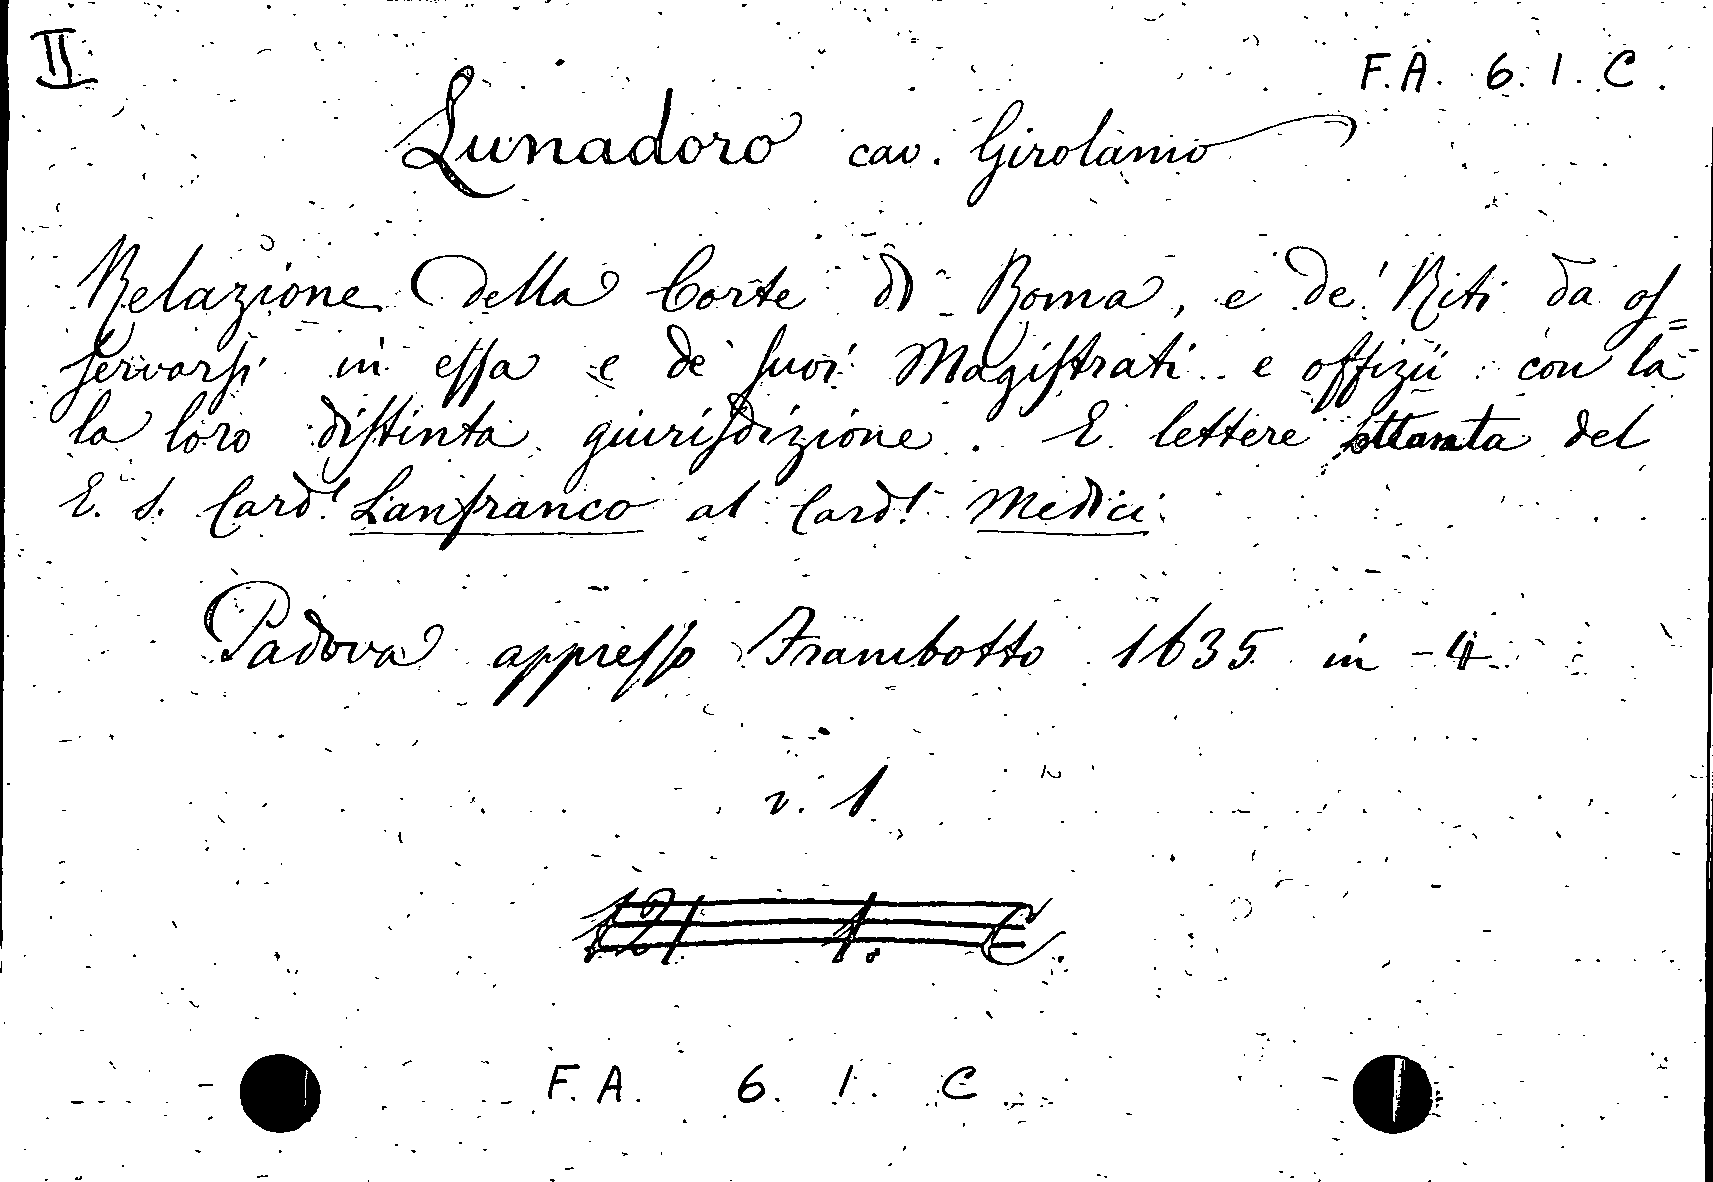 II
F.A. 6. 1. C.
Lunadoro cav. Girolamo
Relazione della Corte di Roma, e de' Riti da os=
servarsi in essa e de' suoi Magistrati e offizii con la
la loro distinta giurisdizione. E lettere ottanta del
E. S. Card.l Lanfranco al Card.l Medici.
Padova appresso Frambotto 1635 in-4
v. 1
121 1. C.
F.A. 6. 1. C